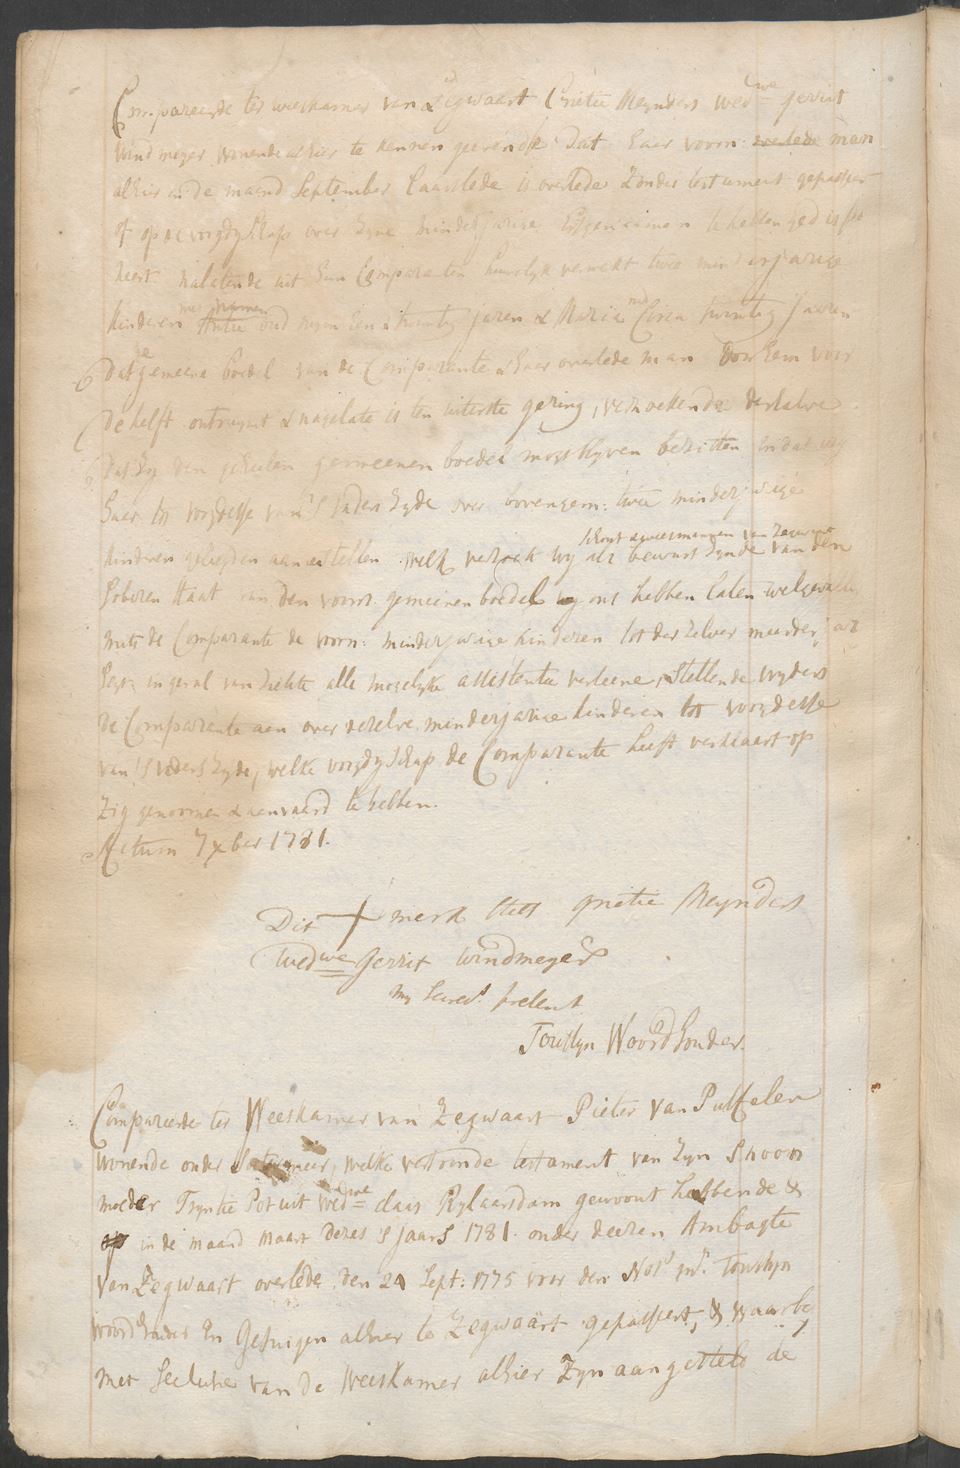 Compareerde ter weeskamer van Zegwaart Grietie Meynders wedwe gerrit
Windmeyer wonende alhier te kennen geevende Dat haer voorn: overlede man
alhier in de maand September laastlede is overlede Zonder testament gepasseert
of op de voogdyschap over Zyne minderjarige Erfgenaamen te hebben gedispo
neert nalatende uit Hun Comparaten huwelyk verwekt twee minderjarige
kinderen met namen Antie oud ruym Een & twintig jaren & Maria Circa twintig Jaaren
Dat gemeene boedel van de Comparante & haer overlede man Door hem voor
de helft ontruymt & nagelate is ten uiterste gering, verzoekende derhalve
Dat Zy den geheelen gemeenen boedel mogt blyven bezitten en dat wy
haer tot voogdesse van 's vaders Zyde over bovengem: twee minderjarige
kinderen geliefden aan te stellen welk verzoek wy als schout & weesmannen van Zegwaart bewust Zynde van den
soberen staat van den voorn gemeenen boedel ons hebben laten welgevalle
mits de Comparante de voorn: minderjarige kinderen tot derzelver meerderjar
heyt in geval van Ziekte alle mogelyke assistentie verleene, Stellende wyders
de Comparante aen over dezelve minderjarige kinderen tot voogdesse
van 's vaders Zyde, welke voogdyschap de Comparante heeft verklaart op
Zig genomen & aenvaard te hebben.
Actum 7 xber 1781.
Dit + merk stelt grietie Meynders
Wedwe Gerrit windmeyer
my Secrets. present
Joustyn Woordhouder.
Compareerde ter Weeskamer van Zegwaart Pieter Van Puffelen
wonende onder Soetermeer, welke vertoonde testament van Zyn Schoon
moeder Tryntie Potuit wedwe claas Rylaarsdam gewoont hebbende &
in de maand Maart dezes 's jaars 1781 onder deezen Ambagte
van Zegwaart overlede den 21 Sept: 1775 voor den Nots. Joustyn
woordhouder En Getuigen alhier te Zegwaart gepasseert, & waarby
met Seclusie van de Weeskamer alhier Zyn aangesteld de